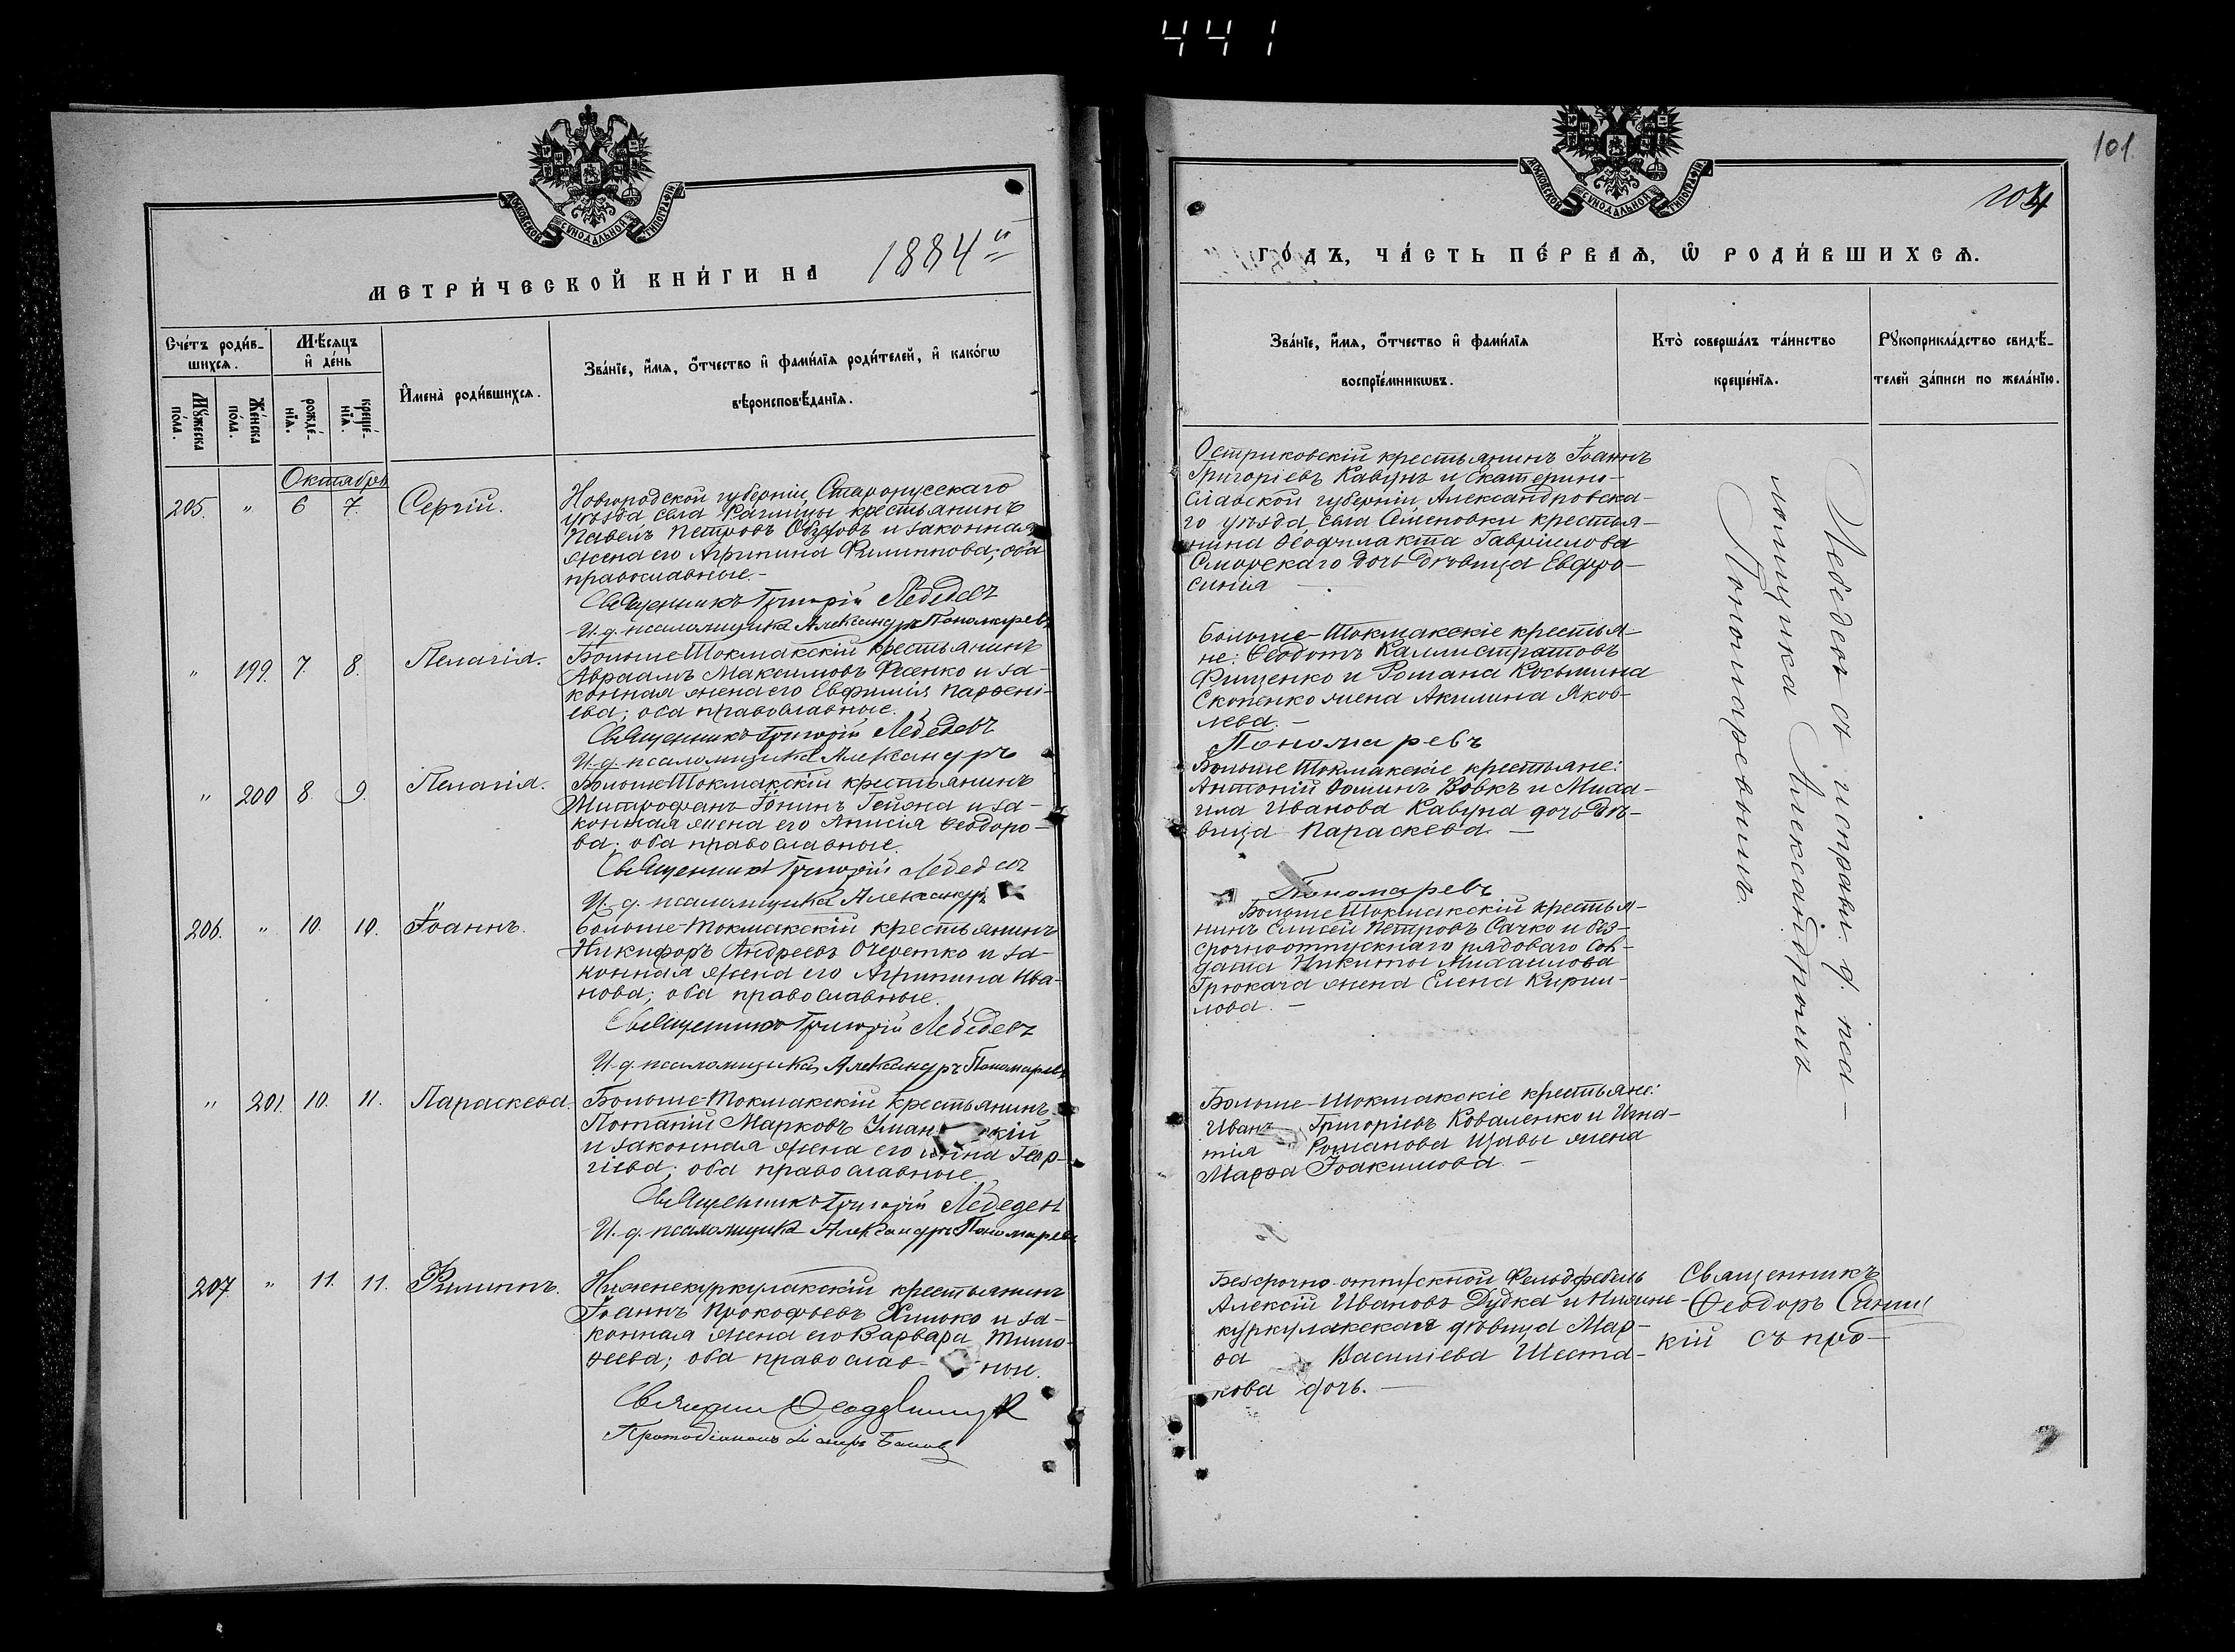 441
МОСКОВСКОЙ СѴНОДАЛЬНОЙ ТИПОГРАФІИ
МЕТРИ́ЧЕСКОЙ КНИ́ГИ НА 1884й
Сче́тъ роди́в-
шихсѧ.
Мѣ́сѧцъ
и҆ де́нь
Мꙋ́жеска
по́ла.
Же́нска
по́ла.
рожде́-
нїѧ.
креще́-
нїѧ.
И҆мена̀ роди́вшихсѧ.
Зва́нїе, и҆́мѧ, ѻ҆́тчество и҆ фами́лїѧ роди́телей, и҆ како́гѡ
вѣроисповѣ́данїѧ.
Октябрь
205. " 6 7. Сергій.
Новгородской губерніи, Старорусскаго
уѣзда села Раглицы крестьянинъ
Павелъ Петровъ Обуховъ и законная
жена его Агрипина Филиппова; оба
православные.-
Священникъ Григорій Лебедевъ
И. д. псаломщика Александръ Пономаревъ
" 199. 7. 8. Пелагія.
Больше Токмакскій крестьянинъ
Авраамъ Максимовъ Фесенко и за-
конная жена его Евфимія Парфені-
ева; оба православные.
Священникъ Григорій Лебедевъ
И. д. псаломщика Александръ
" 200 8. 9. Пелагія.
Больше Токмакскій крестьянинъ
Митрофанъ Іонинъ и за-
конная жена его Анисія Ѳеодоро-
ва; оба православные.
Священникъ Григорій Лебедевъ
И. д. псаломщика Александръ
206. " 10. 10. Іоаннъ.
Больше-Токмакскій крестьянинъ
Никифоръ Андреевъ Очеретко и за-
конная жена его Агрипина Ива-
нова; оба православные.
Священникъ Григорій Лебедевъ
И. д. псаломщика Александръ Пономаревъ
" 201. 10. 11. Параскева.
Больше-Токмакскій крестьянинъ
Потапій Марковъ Уман кій
и законная жена его Геор-
гіева; оба православные
Священникъ Григорій Лебедевъ
И. д. псаломщика Александръ Пономаревъ
207 " 11. 11. Филиппъ.
Нижнекуркулакскій крестьянинъ
Іоаннъ Прокофьевъ Хлиоко и за-
конная жена его Варвара Тимо-
ѳеева; оба православ- ные.
Протодіаконъ
101.
204
МОСКОВСКОЙ СѴНОДАЛЬНОЙ ТИПОГРАФІИ
ГО́ДЪ, ЧА́СТЬ ПЕ́РВАѦ, Ѡ҆ РОДИ́ВШИХСѦ.
Зва́нїе, и҆́мѧ, ѻ҆́тчество и҆ фами́лїѧ
воспрїе́мникѡвъ.
Кто̀ соверша́лъ та́инство
креще́нїѧ.
Рꙋкоприкла́дство свидѣ́-
телей за́писи по жела́нїю.
Остриковскій крестьянинъ Іоаннъ
Григоріевъ Кавунъ и Екатерино-
славской губерніи, Александровска-
го уѣзда, села Семеновки крестья-
нина Ѳеофилакта Гавріилова
Сморскаго дочь дѣвица Евфро-
синія
Больше-Токмакскіе крестья-
не: Ѳеодотъ Каллистратовъ
Фищенко и Романа Косьмина
Скопенко жена Акилина Яков-
лева. -
Пономаревъ
Больше Токмакскіе крестьяне:
Антоній Ѳоминъ Вовкъ и Миха-
ила Иванова Кавуна дочь дѣ-
вица Параскева. -
Пономаревъ
Больше Токмакскій крестья-
нинъ Елисей Петровъ Сачко и без-
срочноотпускнаго рядоваго сол-
дата Никиты Михаилова
Грюкача жена Елена Кирил-
лова. -
Больше-Токмакскіе крестьяне:
Иванъ Григоріевъ Коваленко и Игна-
тія Романова Щавы жена
Марѳа Іоакимова. -
Безсрочно-отпускной Фельдфебель
Алексій Ивановъ Дудка и Нижне-
куркулакская дѣвица Мар-
ѳа Василіева Шеста-
кова дочь. -
Лебедевъ съ исправл. д. пса-
ломщика Александромъ
Пономаревымъ
Священникъ
Ѳеодоръ
кій съ про-